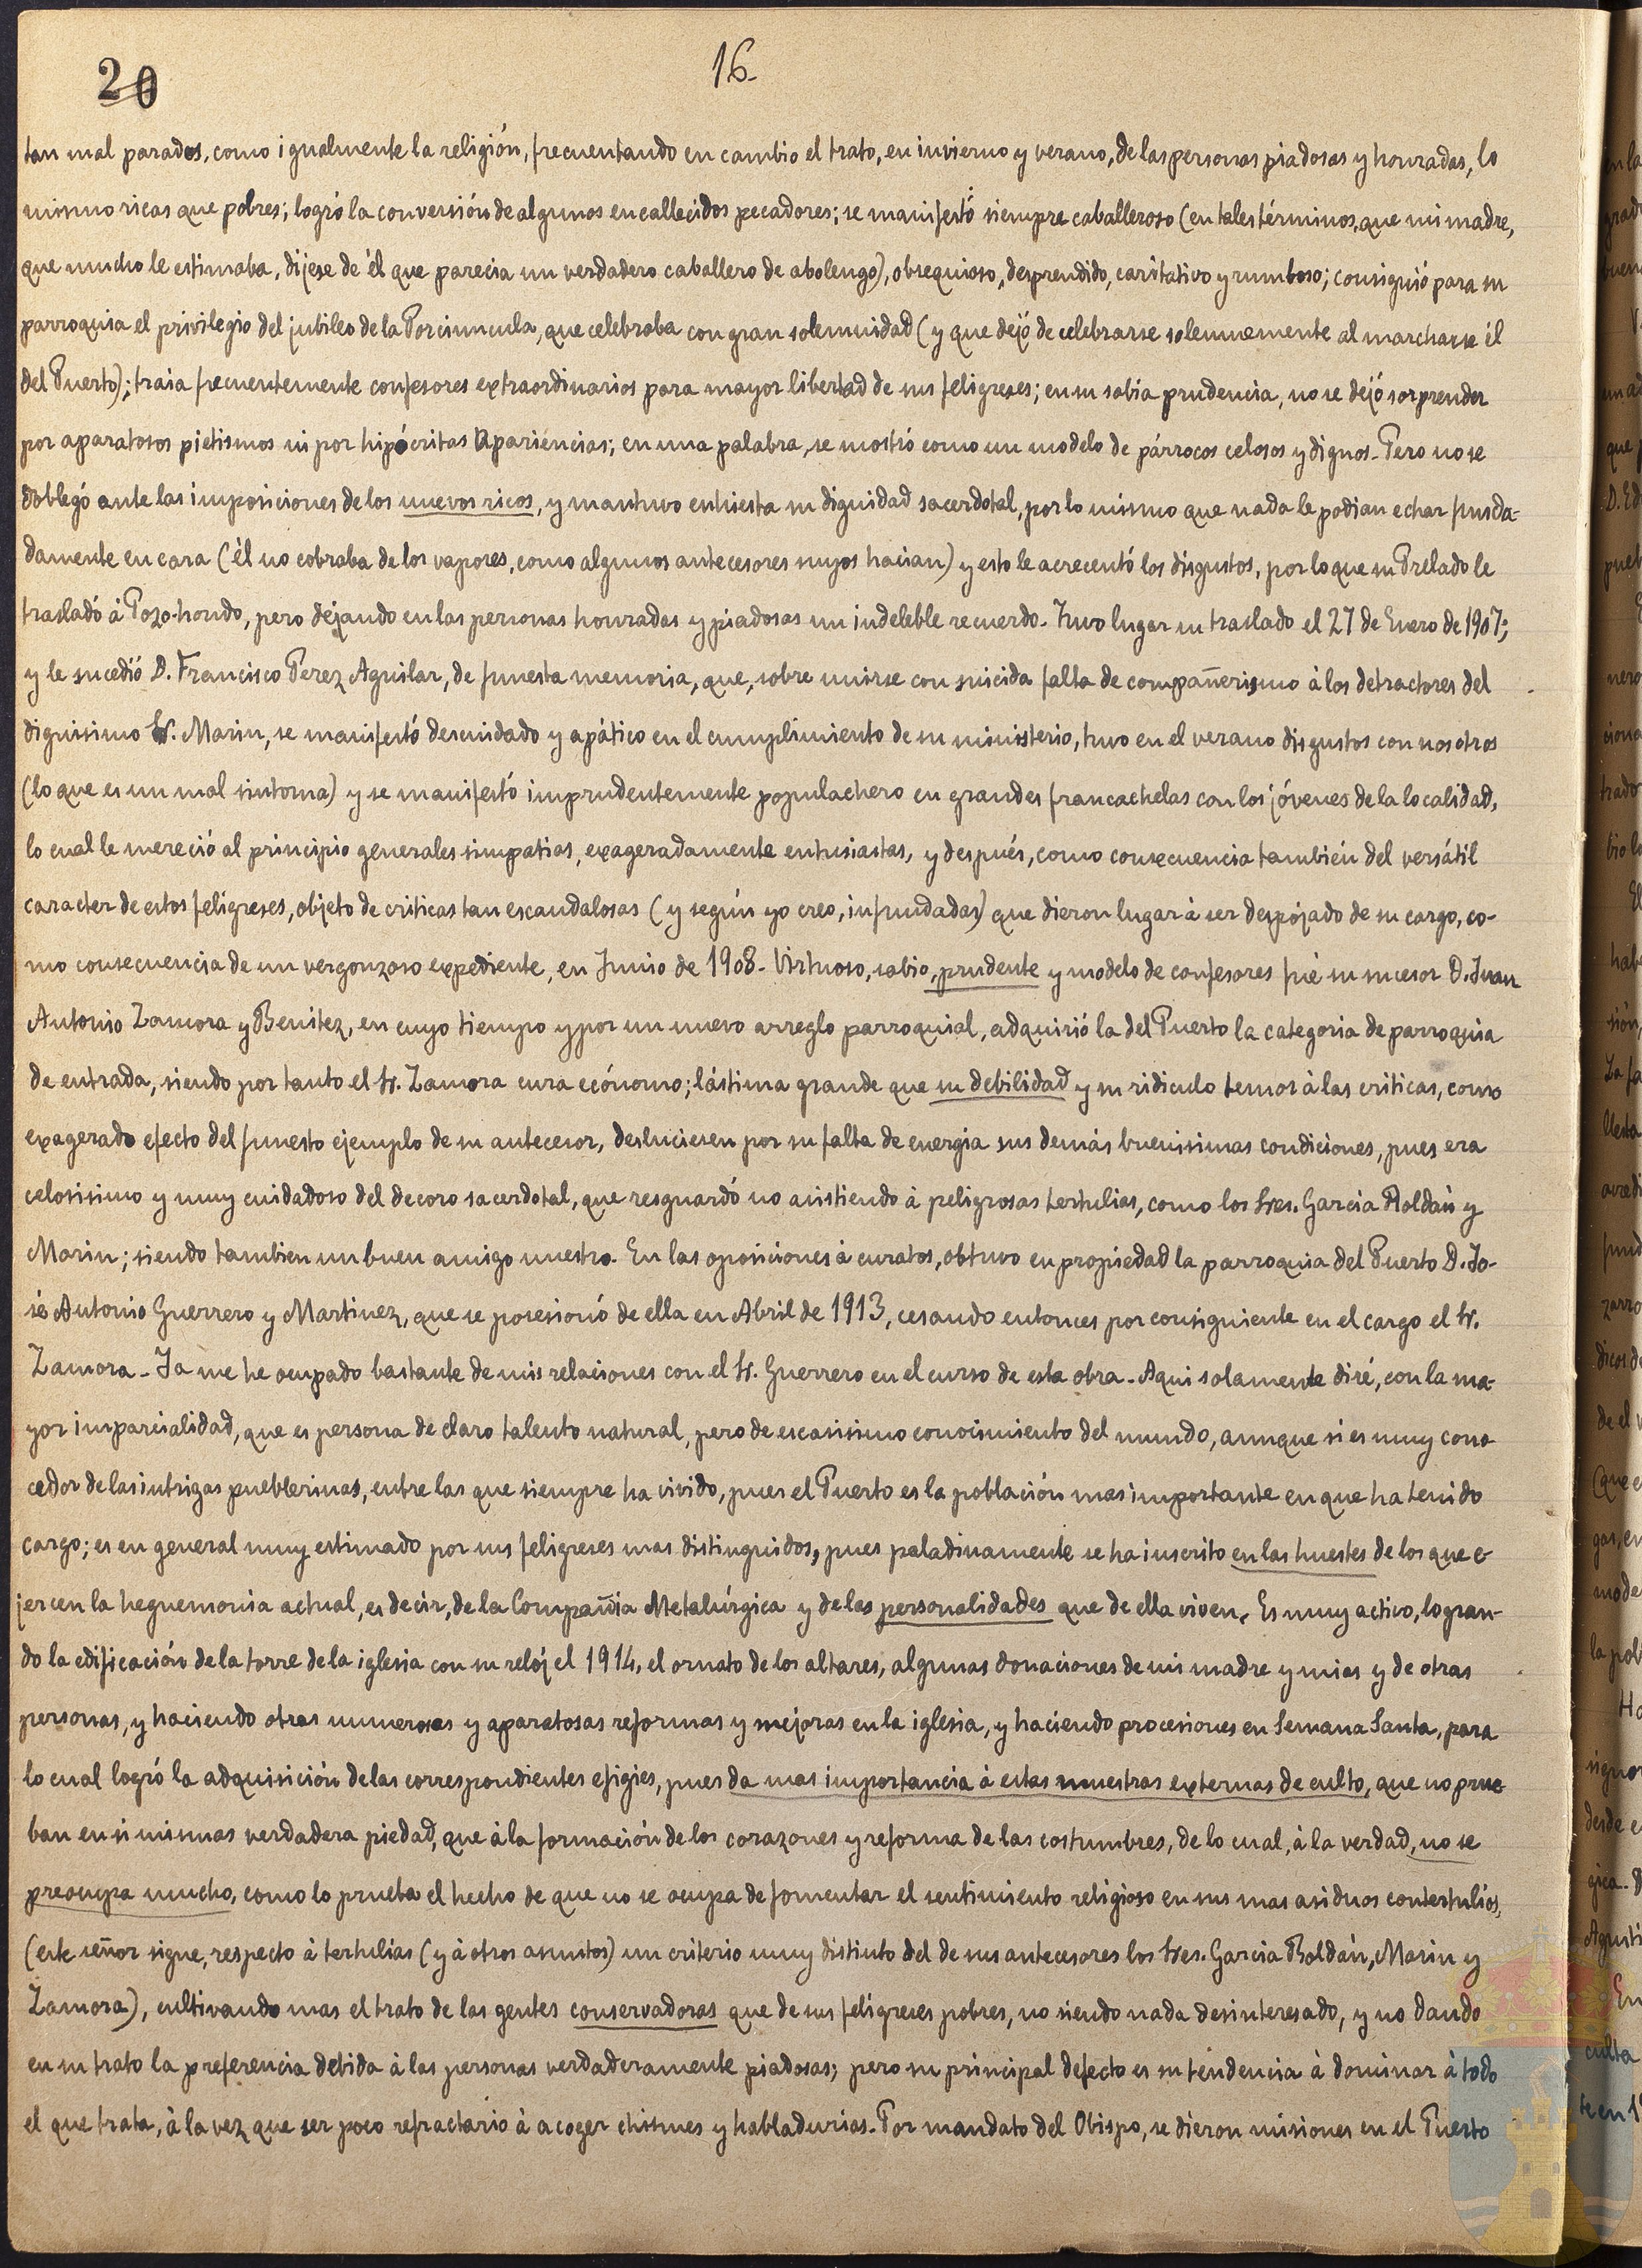 20
16.
tan mal parados, como igualmente la religión, frecuentando en cambio el trato, en invierno y verano, de las personas piadosas y honradas, lo
mismo ricas que pobres; logró la conversión de algunos encallecidos pecadores; se manifestó siempre caballeroso (en tales términos, que mi madre,
que mucho le estimaba, dijese de él que parecia un verdadero caballero de abolengo), obsequioso, desprendido, caritativo y rumboso; consiguió para su
parroquia el privilegio del jubileo de la Porciuncula, que celebraba con gran solemnidad (y que dejó de celebrarse solemnemente al marcharse él
del Puerto); traia frecuentemente confesores extraordinarios para mayor libertad de sus feligreses; en su sabia prudencia, no se dejó sorprender
por aparatosos pietismos ni por hipócritas apariencias; en una palabra, se mostró como un modelo de párrocos celosos y dignos. Pero no se
doblegó ante las imposiciones de los nuevos ricos, y mantuvo enhiesta su dignidad sacerdotal, por lo mismo que nada le podian echar funda-
damente en cara (él no cobraba de los vapores, como algunos antecesores suyos hacian) y esto le acrecentó los disgustos, por lo que su Prelado le
trasladó à Pozo-hondo, pero dejando en las personas honradas y piadosas un indeleble recuerdo. Tuvo lugar su traslado el 27 de Enero de 1907;
y le sucedió D. Francisco Perez Aguilar, de funesta memoria, que, sobre unirse con suicida falta de compañerismo à los detractores del
dignisimo Sr. Marin, se manifestó descuidado y apático en el cumplimiento de su ministerio, tuvo en el verano disgustos con nosotros
(lo que es un mal sintoma) y se manifestó imprudentemente populachero en grandes francachelas con los jóvenes de la localidad,
lo cual le mereció al principio generales simpatias, exageradamente entusiastas, y después, como consecuencia también del versátil
caracter de estos feligreses, objeto de criticas tan escandalosas (y según yo creo, infundadas) que dieron lugar à ser despojado de su cargo, co-
mo consecuencia de un vergonzoso expediente, en Junio de 1908. Virtuoso, sabio, prudente y modelo de confesores fué su sucesor D. Juan
Antonio Zamora y Benitez, en cuyo tiempo y por un nuevo arreglo parroquial, adquirió la del Puerto la categoria de parroquia
de entrada, siendo por tanto el Sr. Zamora cura ecónomo; lástima grande que su debilidad y su ridiculo temor à las criticas, como
exagerado efecto del funesto ejemplo de su antecesor, desluciesen por su falta de energia sus demás buenisimas condiciones, pues era
celosisimo y muy cuidadoso del decoro sacerdotal, que resguardó no asistiendo à peligrosas tertulias, como los Sres. Garcia Roldán y
Marin; siendo tambien un buen amigo nuestro. En las oposiciones à curatos, obtuvo en propiedad la parroquia del Puerto D. Jo-
sé Antonio Guerrero y Martinez, que se posesionó de ella en Abril de 1913, cesando entonces por consiguiente en el cargo el Sr.
Zamora. Ya me he ocupado bastante de mis relaciones con el Sr. Guerrero en el curso de esta obra. Aqui solamente diré, con la ma-
yor imparcialidad, que es persona de claro talento natural, pero de escasisimo conocimiento del mundo, aunque si es muy cono-
cedor de las intrigas pueblerinas, entre las que siempre ha vivido, pues el Puerto es la población mas importante en que ha tenido
cargo; es en general muy estimado por sus feligreses mas distinguidos, pues paladinamente se ha inscrito en las huestes de los que e-
jercen la heguemonia actual, es decir, de la Compañia Metalúrgica y de las personalidades que de ella viven. Es muy activo, logran-
do la edificación de la torre de la iglesia con su reloj el 1914, el ornato de los altares, algunas donaciones de mi madre y mias y de otras
personas, y haciendo otras numerosas y aparatosas reformas y mejoras en la iglesia, y haciendo procesiones en Semana Santa, para
lo cual logró la adquisición de las correspondientes efigies, pues da mas importancia à estas muestras externas de culto, que no prue-
ban en si mismas verdadera piedad, que à la formación de los corazones y reforma de las costumbres, de lo cual, à la verdad, no se
preocupa mucho, como lo prueba el hecho de que no se ocupa de fomentar el sentimiento religioso en sus mas asiduos contertulios,
(este señor sigue, respecto à tertulias (y à otros asuntos) un criterio muy distinto del de sus antecesores los Sres. Garcia Roldán, Marin y
Zamora), cultivando mas el trato de las gentes conservadoras que de sus feligreses pobres, no siendo nada desinteresado, y no dando
en su trato la preferencia debida à las personas verdaderamente piadosas; pero su principal defecto es su tendencia à dominar à todo
el que trata, à la vez que ser poco refractario à acoger chismes y habladurias. Por mandato del Obispo, se dieron misiones en el Puerto